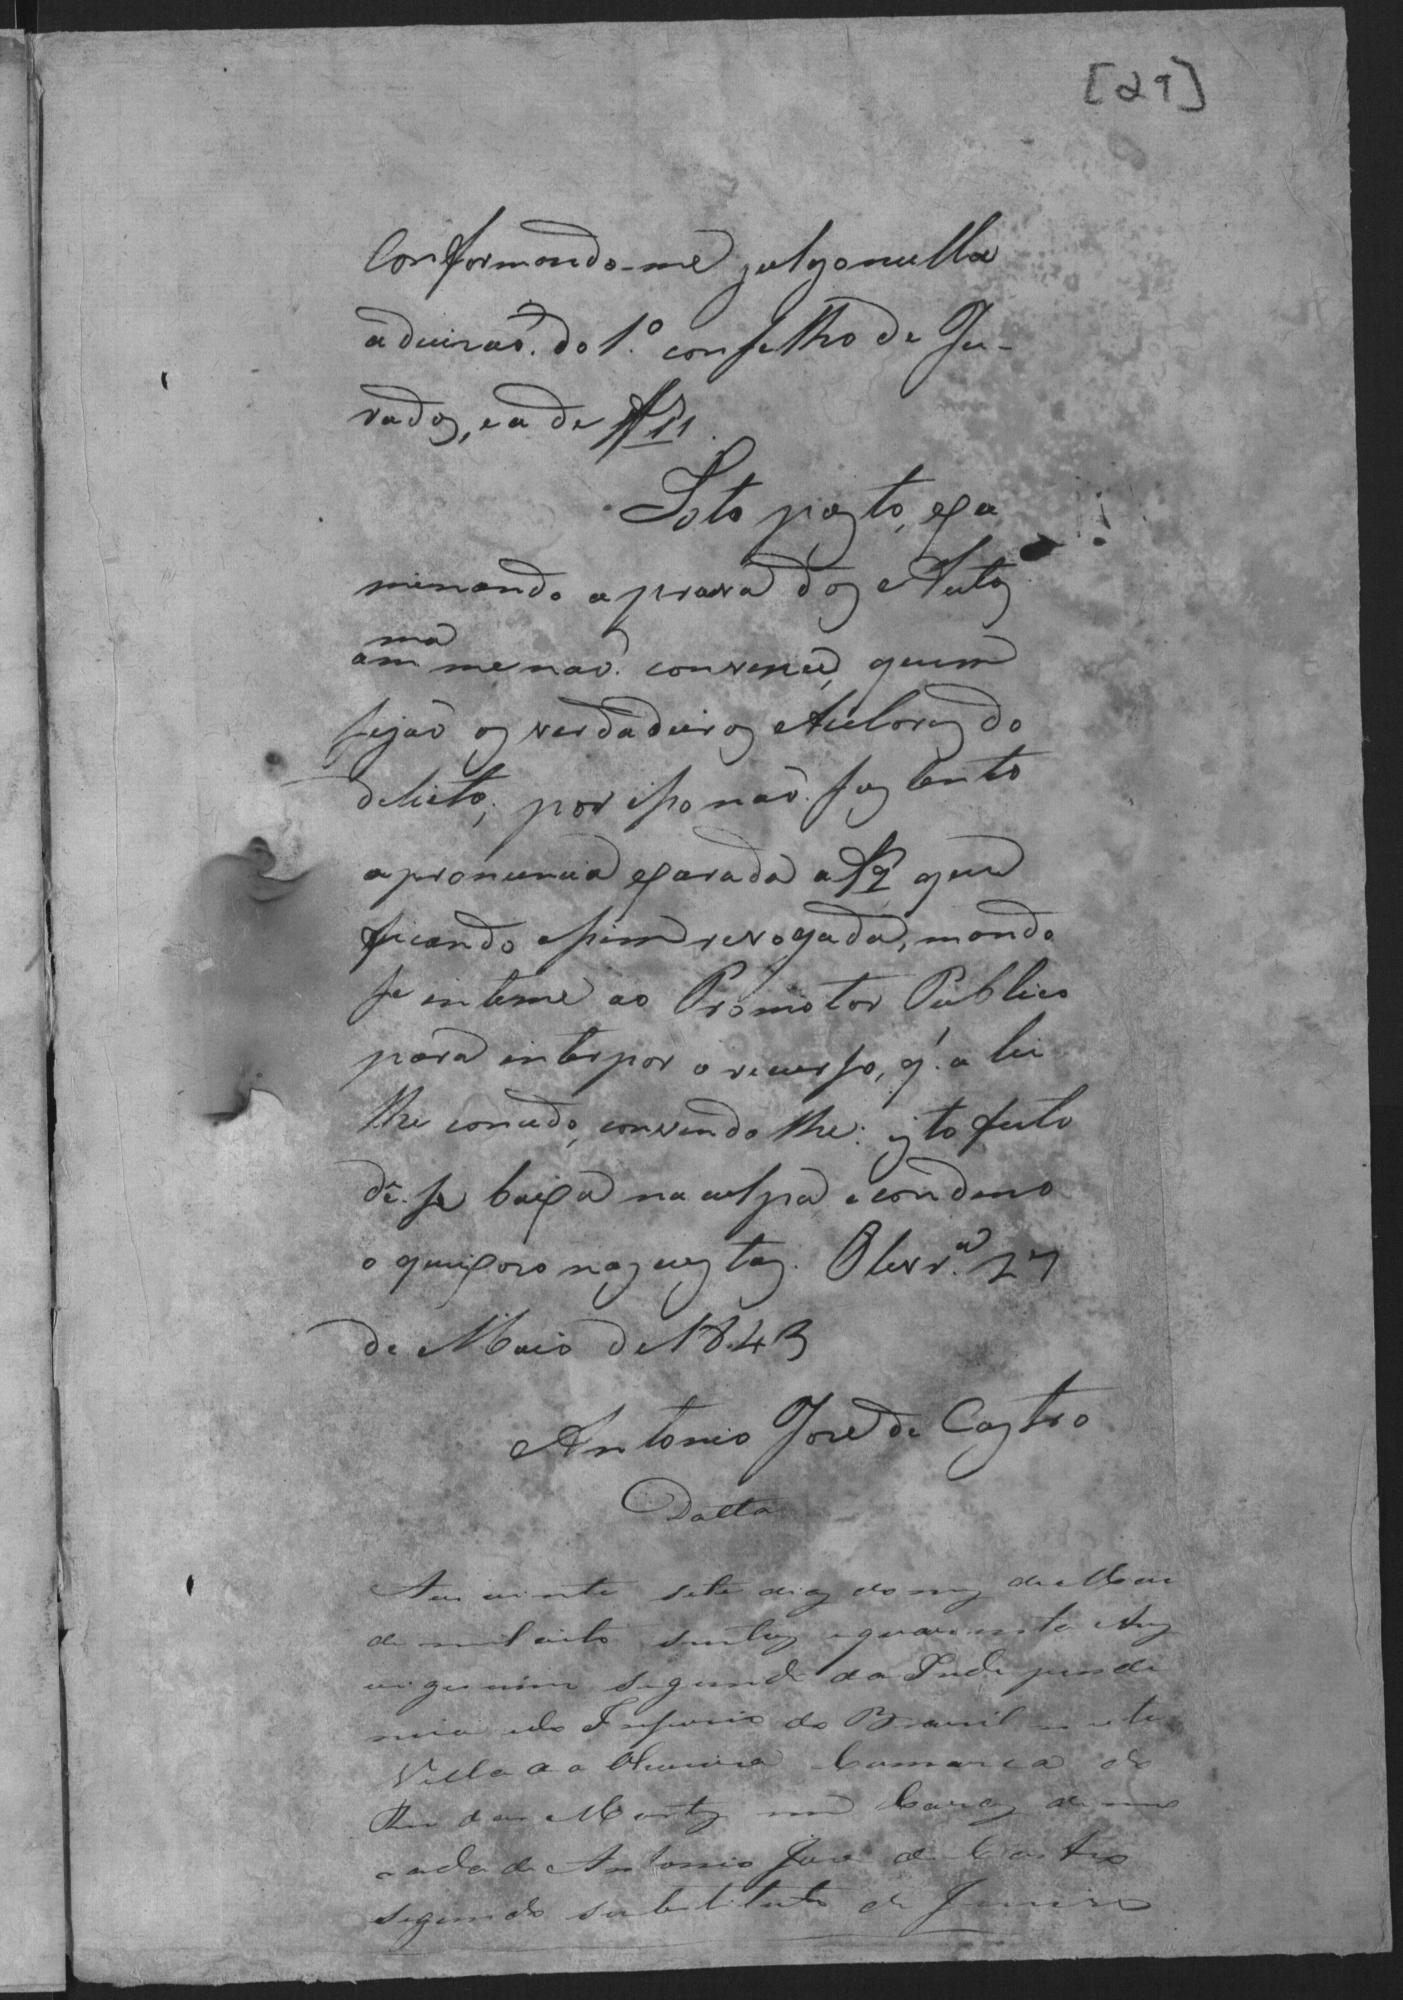 [29]
Conformando-me julgo nulla
a decizaõ. do 1.º conselho de Ju-
rados, e a de f 11.
Isto posto, exa
minando a prova dos Autos
ma
am me naõ. convence, quem
sejaõ os verdadeiros Autores do
delicto, por isso naõ. sustento
a pronuncia exarada a f 9 que
ficando assim revogada, mando
se intime ao Promotor Publico
para interpor o recurso, q.' a lei
lhe concede, convindo lhe: isto feito
dê. se baixa na culpa e condeno
o queixoso nas custas. Olivr.ª 27
de Maio de 1843
Antonio José de Castro
Datta
Aos vinte sete dias do mes de Maio
de mil oito centos e quarenta e tres
vigesimo segundo da Independe
ncia e do Imperio do Brasil nesta
Villa da Oliveira Comarca do
Rio das Mortes em Cazas de mo
rada de Antonio José de Castro
segundo substituto do Juiso